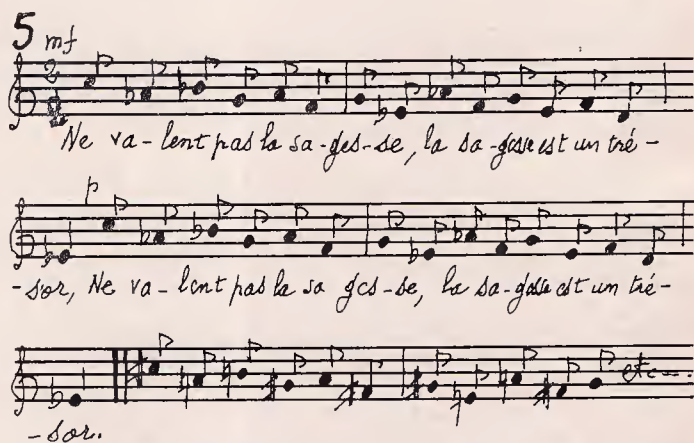 5 mf
2
Ne va-lent pas la sa-ges-se, la sa-gesse est un tré-
p
-sor, Ne va-lent pas la sa ges-se, la sa-gesse est un tré-
etc
-sor.